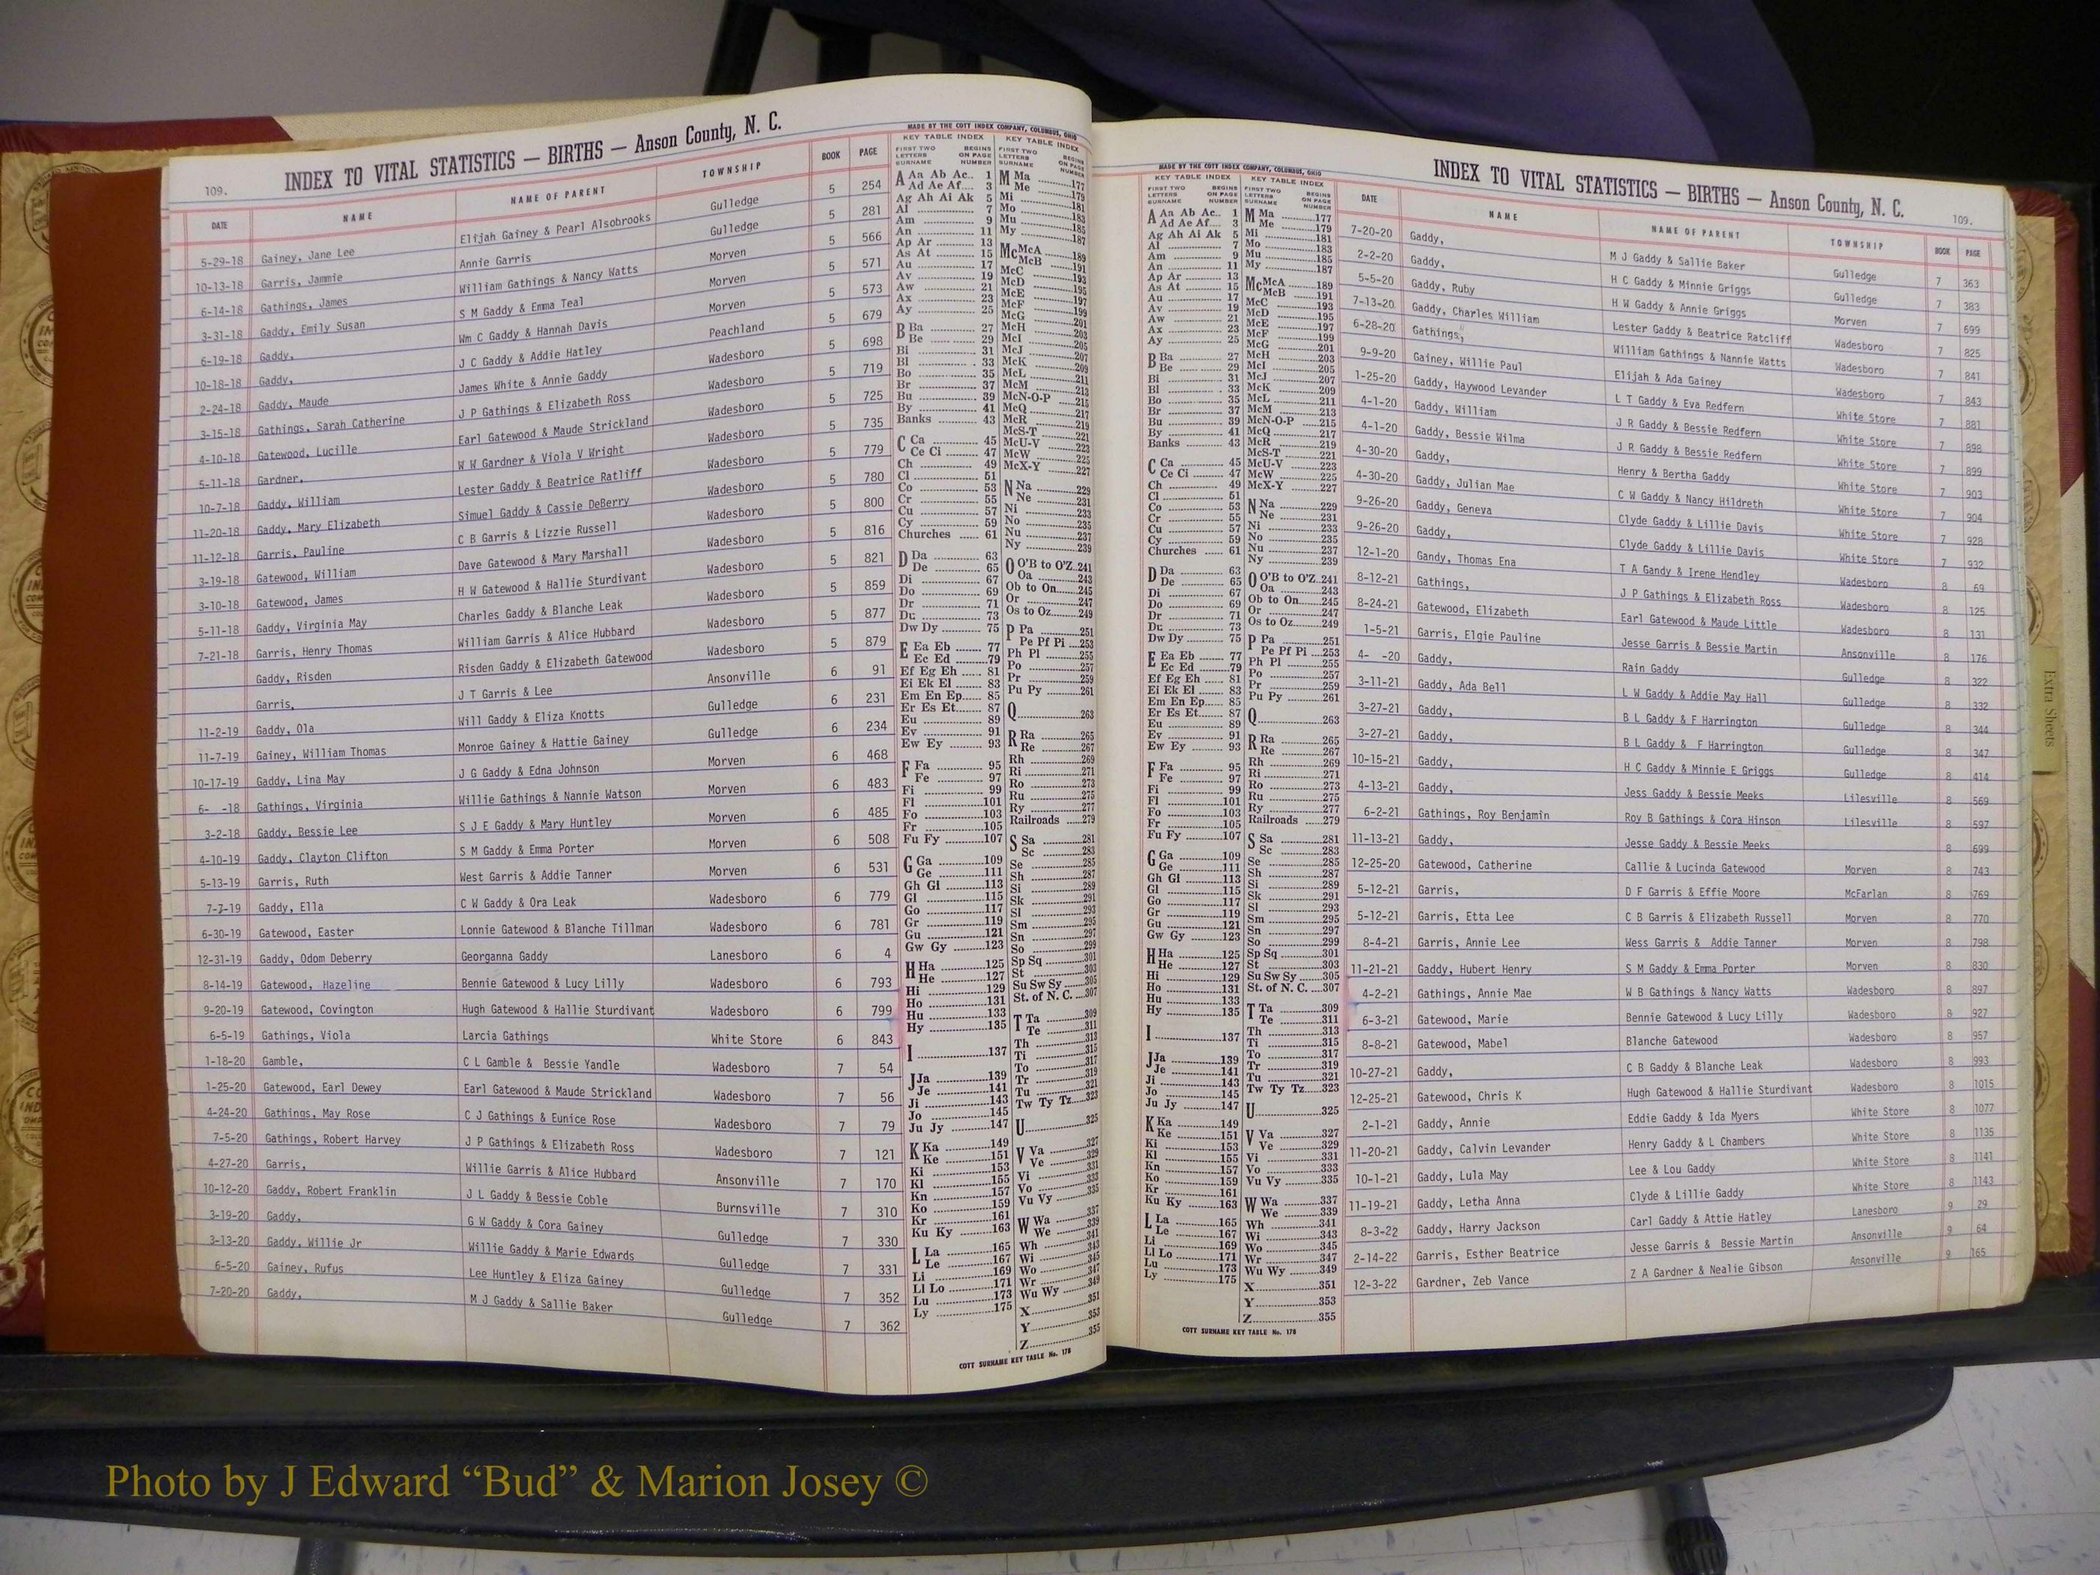 109. INDEX TO VITAL STATISTICS — BIRTHS — Anson County, N. C.
DATE NAME NAME OF PARENT TOWNSHIP BOOK PAGE
5-29-18 Gainey, Jane Lee Elijah Gainey & Pearl Alsobrooks Gulledge 5 254
10-13-18 Garris, Jammie Annie Garris Gulledge 5 281
6-14-18 Gathings, James William Gathings & Nancy Watts Morven 5 566
3-31-18 Gaddy, Emily Susan S M Gaddy & Emma Teal Morven 5 571
6-19-18 Gaddy, Wm C Gaddy & Hannah Davis Morven 5 573
10-18-18 Gaddy, J C Gaddy & Addie Hatley Peachland 5 679
2-24-18 Gaddy, Maude James White & Annie Gaddy Wadesboro 5 698
3-15-18 Gathings, Sarah Catherine J P Gathings & Elizabeth Ross Wadesboro 5 719
4-10-18 Gatewood, Lucille Earl Gatewood & Maude Strickland Wadesboro 5 725
5-11-18 Gardner, W W Gardner & Viola V Wright Wadesboro 5 735
10-7-18 Gaddy, William Lester Gaddy & Beatrice Ratliff Wadesboro 5 779
11-20-18 Gaddy, Mary Elizabeth Simuel Gaddy & Cassie DeBerry Wadesboro 5 780
11-12-18 Garris, Pauline C B Garris & Lizzie Russell Wadesboro 5 800
3-19-18 Gatewood, William Dave Gatewood & Mary Marshall Wadesboro 5 816
3-10-18 Gatewood, James H W Gatewood & Hallie Sturdivant Wadesboro 5 821
5-11-18 Gaddy, Virginia May Charles Gaddy & Blanche Leak Wadesboro 5 859
7-21-18 Garris, Henry Thomas William Garris & Alice Hubbard Wadesboro 5 877
Gaddy, Risden Risden Gaddy & Elizabeth Gatewood Wadesboro 5 879
Garris, J T Garris & Lee Ansonville 6 91
11-2-19 Gaddy, Ola Will Gaddy & Eliza Knotts Gulledge 6 231
11-7-19 Gainey, William Thomas Monroe Gainey & Hattie Gainey Gulledge 6 234
10-17-19 Gaddy, Lina May J G Gaddy & Edna Johnson Morven 6 468
6- -18 Gathings, Virginia Willie Gathings & Nannie Watson Morven 6 483
3-2-18 Gaddy, Bessie Lee S J E Gaddy & Mary Huntley Morven 6 485
4-10-19 Gaddy, Clayton Clifton S M Gaddy & Emma Porter Morven 6 508
5-13-19 Garris, Ruth West Garris & Addie Tanner Morven 6 531
7-7-19 Gaddy, Ella C W Gaddy & Ora Leak Wadesboro 6 779
6-30-19 Gatewood, Easter Lonnie Gatewood & Blanche Tillman Wadesboro 6 781
12-31-19 Gaddy, Odom Deberry Georganna Gaddy Lanesboro 6 4
8-14-19 Gatewood, Hazeline Bennie Gatewood & Lucy Lilly Wadesboro 6 793
9-20-19 Gatewood, Covington Hugh Gatewood & Hallie Sturdivant Wadesboro 6 799
6-5-19 Gathings, Viola Larcia Gathings White Store 6 843
1-18-20 Gamble, C L Gamble & Bessie Yandle Wadesboro 7 54
1-25-20 Gatewood, Earl Dewey Earl Gatewood & Maude Strickland Wadesboro 7 56
4-24-20 Gathings, May Rose C J Gathings & Eunice Rose Wadesboro 7 79
7-5-20 Gathings, Robert Harvey J P Gathings & Elizabeth Ross Wadesboro 7 121
4-27-20 Garris, Willie Garris & Alice Hubbard Ansonville 7 170
10-12-20 Gaddy, Robert Franklin J L Gaddy & Bessie Coble Burnsville 7 310
3-19-20 Gaddy, G W Gaddy & Cora Gainey Gulledge 7 330
3-13-20 Gaddy, Willie Jr Willie Gaddy & Marie Edwards Gulledge 7 331
6-5-20 Gainey, Rufus Lee Huntley & Eliza Gainey Gulledge 7 352
7-20-20 Gaddy, M J Gaddy & Sallie Baker Gulledge 7 362
MADE BY THE COTT INDEX COMPANY, COLUMBUS, OHIO
KEY TABLE INDEX KEY TABLE INDEX
FIRST TWO LETTERS SURNAME BEGINS ON PAGE NUMBER FIRST TWO LETTERS SURNAME BEGINS ON PAGE NUMBER
A Aa Ab Ac.. 1
Ad Ae Af.... 3
Ag Ah Ai Ak 5
Al 7
Am 9
An 11
Ap Ar 13
As At 15
Au 17
Av 19
Aw 21
Ax 23
Ay 25
B Ba 27
Be 29
Bi 31
Bl 33
Bo 35
Br 37
Bu 39
By 41
Banks 43
C Ca 45
Ce Ci 47
Ch 49
Cl 51
Co 53
Cr 55
Cu 57
Cy 59
Churches 61
D Da 63
De 65
Di 67
Do 69
Dr 71
Du 73
Dw Dy 75
E Ea Eb 77
Ec Ed 79
Ef Eg Eh 81
Ei Ek El 83
Em En Ep 85
Er Es Et 87
Eu 89
Ev 91
Ew Ey 93
F Fa 95
Fe 97
Fi 99
Fl 101
Fo 103
Fr 105
Fu Fy 107
G Ga 109
Ge 111
Gh Gi 113
Gl 115
Go 117
Gr 119
Gu 121
Gw Gy 123
H Ha 125
He 127
Hi 129
Ho 131
Hu 133
Hy 135
I 137
J Ja 139
Je 141
Ji 143
Jo 145
Ju Jy 147
K Ka 149
Ke 151
Ki 153
Kl 155
Kn 157
Ko 159
Kr 161
Ku Ky 163
L La 165
Le 167
Li 169
Ll Lo 171
Lu 173
Ly 175
M Ma 177
Me 179
Mi 181
Mo 183
Mu 185
My 187
Mc McA 189
McB 191
McC 193
McD 195
McE 197
McF 199
McG 201
McH 203
McI 205
McJ 207
McK 209
McL 211
McM 213
McN-O-P 215
McQ 217
McR 219
McS-T 221
McU-V 223
McW 225
McX-Y 227
N Na 229
Ne 231
Ni 233
No 235
Nu 237
Ny 239
O O'B to O'Z 241
Oa 243
Ob to On 245
Or 247
Os to Oz 249
P Pa 251
Pe Pf Pi 253
Ph Pl 255
Po 257
Pr 259
Pu Py 261
Q 263
R Ra 265
Re 267
Rh 269
Ri 271
Ro 273
Ru 275
Ry 277
Railroads 279
S Sa 281
Sc 283
Se 285
Sh 287
Si 289
Sk 291
Sl 293
Sm 295
Sn 297
So 299
Sp Sq 301
St 303
Su Sw Sy 305
St. of N. C. 307
T Ta 309
Te 311
Th 313
Ti 315
To 317
Tr 319
Tu 321
Tw Ty Tz 323
U 325
V Va 327
Ve 329
Vi 331
Vo 333
Vu Vy 335
W Wa 337
We 339
Wh 341
Wi 343
Wo 345
Wr 347
Wu Wy 349
X 351
Y 353
Z 355
COTT SURNAME KEY TABLE No. 178
MADE BY THE COTT INDEX COMPANY, COLUMBUS, OHIO
KEY TABLE INDEX KEY TABLE INDEX
FIRST TWO LETTERS SURNAME BEGINS ON PAGE NUMBER FIRST TWO LETTERS SURNAME BEGINS ON PAGE NUMBER
A Aa Ab Ac.. 1
Ad Ae Af.... 3
Ag Ah Ai Ak 5
Al 7
Am 9
An 11
Ap Ar 13
As At 15
Au 17
Av 19
Aw 21
Ax 23
Ay 25
B Ba 27
Be 29
Bi 31
Bl 33
Bo 35
Br 37
Bu 39
By 41
Banks 43
C Ca 45
Ce Ci 47
Ch 49
Cl 51
Co 53
Cr 55
Cu 57
Cy 59
Churches 61
D Da 63
De 65
Di 67
Do 69
Dr 71
Du 73
Dw Dy 75
E Ea Eb 77
Ec Ed 79
Ef Eg Eh 81
Ei Ek El 83
Em En Ep 85
Er Es Et 87
Eu 89
Ev 91
Ew Ey 93
F Fa 95
Fe 97
Fi 99
Fl 101
Fo 103
Fr 105
Fu Fy 107
G Ga 109
Ge 111
Gh Gi 113
Gl 115
Go 117
Gr 119
Gu 121
Gw Gy 123
H Ha 125
He 127
Hi 129
Ho 131
Hu 133
Hy 135
I 137
J Ja 139
Je 141
Ji 143
Jo 145
Ju Jy 147
K Ka 149
Ke 151
Ki 153
Kl 155
Kn 157
Ko 159
Kr 161
Ku Ky 163
L La 165
Le 167
Li 169
Ll Lo 171
Lu 173
Ly 175
M Ma 177
Me 179
Mi 181
Mo 183
Mu 185
My 187
Mc McA 189
McB 191
McC 193
McD 195
McE 197
McF 199
McG 201
McH 203
McI 205
McJ 207
McK 209
McL 211
McM 213
McN-O-P 215
McQ 217
McR 219
McS-T 221
McU-V 223
McW 225
McX-Y 227
N Na 229
Ne 231
Ni 233
No 235
Nu 237
Ny 239
O O'B to O'Z 241
Oa 243
Ob to On 245
Or 247
Os to Oz 249
P Pa 251
Pe Pf Pi 253
Ph Pl 255
Po 257
Pr 259
Pu Py 261
Q 263
R Ra 265
Re 267
Rh 269
Ri 271
Ro 273
Ru 275
Ry 277
Railroads 279
S Sa 281
Sc 283
Se 285
Sh 287
Si 289
Sk 291
Sl 293
Sm 295
Sn 297
So 299
Sp Sq 301
St 303
Su Sw Sy 305
St. of N. C. 307
T Ta 309
Te 311
Th 313
Ti 315
To 317
Tr 319
Tu 321
Tw Ty Tz 323
U 325
V Va 327
Ve 329
Vi 331
Vo 333
Vu Vy 335
W Wa 337
We 339
Wh 341
Wi 343
Wo 345
Wr 347
Wu Wy 349
X 351
Y 353
Z 355
COTT SURNAME KEY TABLE No. 178
INDEX TO VITAL STATISTICS — BIRTHS — Anson County, N. C. 109.
DATE NAME NAME OF PARENT TOWNSHIP BOOK PAGE
7-20-20 Gaddy, M J Gaddy & Sallie Baker Gulledge 7 363
2-2-20 Gaddy, H C Gaddy & Minnie Griggs Gulledge 7 383
5-5-20 Gaddy, Ruby H W Gaddy & Annie Griggs Morven 7 699
7-13-20 Gaddy, Charles William Lester Gaddy & Beatrice Ratcliff Wadesboro 7 825
6-28-20 Gathings, William Gathings & Nannie Watts Wadesboro 7 841
9-9-20 Gainey, Willie Paul Elijah & Ada Gainey Wadesboro 7 843
1-25-20 Gaddy, Haywood Levander L T Gaddy & Eva Redfern White Store 7 881
4-1-20 Gaddy, William J R Gaddy & Bessie Redfern White Store 7 898
4-1-20 Gaddy, Bessie Wilma J R Gaddy & Bessie Redfern White Store 7 899
4-30-20 Gaddy, Henry & Bertha Gaddy White Store 7 903
4-30-20 Gaddy, Julian Mae C W Gaddy & Nancy Hildreth White Store 7 904
9-26-20 Gaddy, Geneva Clyde Gaddy & Lillie Davis White Store 7 928
9-26-20 Gaddy, Clyde Gaddy & Lillie Davis White Store 7 932
12-1-20 Gandy, Thomas Ena T A Gandy & Irene Hendley Wadesboro 8 69
8-12-21 Gathings, J P Gathings & Elizabeth Ross Wadesboro 8 125
8-24-21 Gatewood, Elizabeth Earl Gatewood & Maude Little Wadesboro 8 131
1-5-21 Garris, Elgie Pauline Jesse Garris & Bessie Martin Ansonville 8 176
4- -20 Gaddy, Rain Gaddy Gulledge 8 322
3-11-21 Gaddy, Ada Bell L W Gaddy & Addie May Hall Gulledge 8 332
3-27-21 Gaddy, B L Gaddy & F Harrington Gulledge 8 344
3-27-21 Gaddy, B L Gaddy & F Harrington Gulledge 8 347
10-15-21 Gaddy, H C Gaddy & Minnie E Griggs Gulledge 8 414
4-13-21 Gaddy, Jess Gaddy & Bessie Meeks Lilesville 8 569
6-2-21 Gathings, Roy Benjamin Roy B Gathings & Cora Hinson Lilesville 8 597
11-13-21 Gaddy, Jesse Gaddy & Bessie Meeks 8 699
12-25-20 Gatewood, Catherine Callie & Lucinda Gatewood Morven 8 743
5-12-21 Garris, D F Garris & Effie Moore McFarlan 8 769
5-12-21 Garris, Etta Lee C B Garris & Elizabeth Russell Morven 8 770
8-4-21 Garris, Annie Lee Wess Garris & Addie Tanner Morven 8 798
11-21-21 Gaddy, Hubert Henry S M Gaddy & Emma Porter Morven 8 830
4-2-21 Gathings, Annie Mae W B Gathings & Nancy Watts Wadesboro 8 897
6-3-21 Gatewood, Marie Bennie Gatewood & Lucy Lilly Wadesboro 8 927
8-8-21 Gatewood, Mabel Blanche Gatewood Wadesboro 8 957
10-27-21 Gaddy, C B Gaddy & Blanche Leak Wadesboro 8 993
12-25-21 Gatewood, Chris K Hugh Gatewood & Hallie Sturdivant Wadesboro 8 1015
2-1-21 Gaddy, Annie Eddie Gaddy & Ida Myers White Store 8 1077
11-20-21 Gaddy, Calvin Levander Henry Gaddy & L Chambers White Store 8 1135
10-1-21 Gaddy, Lula May Lee & Lou Gaddy White Store 8 1141
11-19-21 Gaddy, Letha Anna Clyde & Lillie Gaddy White Store 8 1143
8-3-22 Gaddy, Harry Jackson Carl Gaddy & Attie Hatley Lanesboro 9 29
2-14-22 Garris, Esther Beatrice Jesse Garris & Bessie Martin Ansonville 9 64
12-3-22 Gardner, Zeb Vance Z A Gardner & Nealie Gibson Ansonville 9 165
Extra Sheets
Photo by J Edward “Bud” & Marion Josey ©